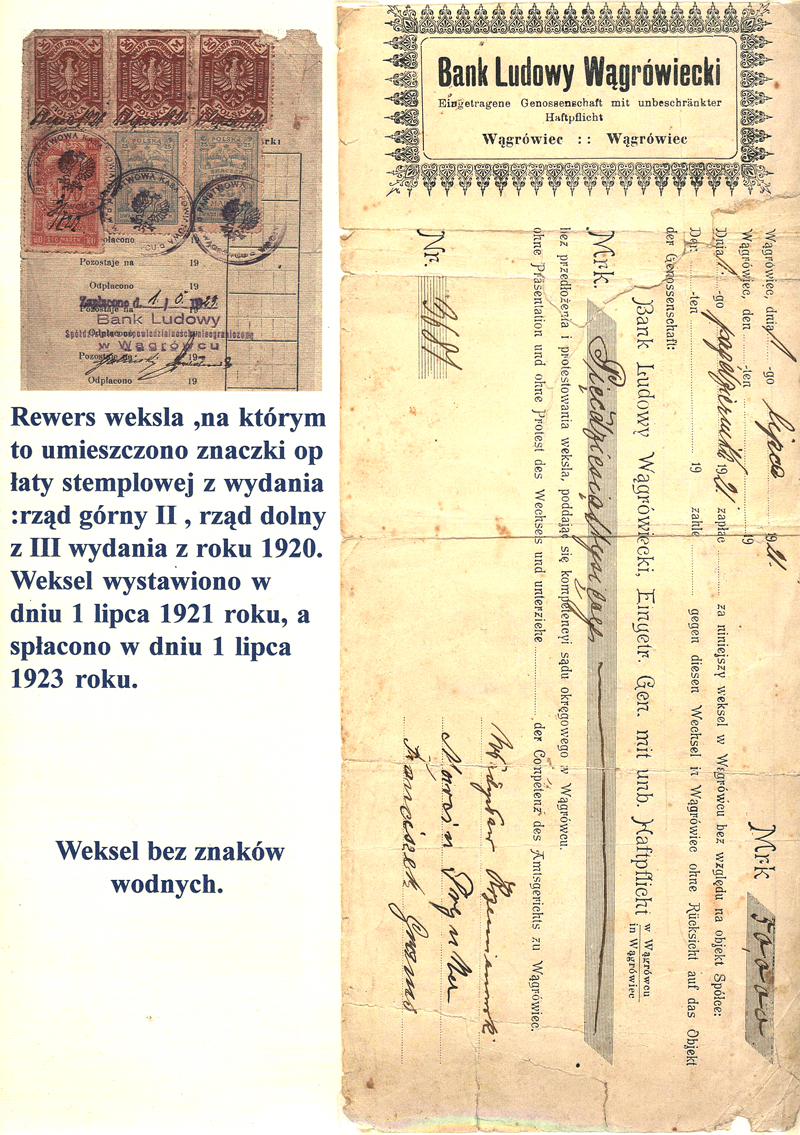 POLSKA
Zapłacono d. 1. 8. 1923
Bank Ludowy
w Wągrówcu
Odpłacono 19
Pozostaje na 19
Odpłacono 19
Pozostaje na
Pozostaje na 19
Odpłacono 19
Rewers weksla ,na którym
to umieszczono znaczki op
łaty stemplowej z wydania
:rząd górny II , rząd dolny
z III wydania z roku 1920.
Weksel wystawiono w
dniu 1 lipca 1921 roku, a
spłacono w dniu 1 lipca
1923 roku.
Weksel bez znaków
wodnych.
Bank Ludowy Wągrówiecki
Eingetragene Genossenschaft mit unbeschränkter
Haftpflicht
Wągrówiec : : Wągrówiec
Wągrówiec, dnia 1 -go lipca 1921.
Mrk 50,000
Wągrówiec, den -ten 19
Dnia 1 -go 1921 zapłac za niniejszy weksel w Wągrówcu bez względu na objekt Spółce:
Der -ten 19 zahle gegen diesen Wechsel in Wągrówiec ohne Rücksicht auf das Objekt
der Genossenschaft:
Bank Ludowy Wągrówiecki, Eingetr. Gen. mit unb. Haftpflicht w Wągrówcu
in Wągrówiec
Mrk. Pięćdziesiąttysięcy
bez przedłożenia i protestowania weksla, poddając się kompetencyi sądu okręgowego w Wągrówcu.
ohne Präsentation und ohne Protest des Wechsels und unterziehe der Competenz des Amtsgerichts zu Wągrówiec.
Nr.
Marcin
Franciszek